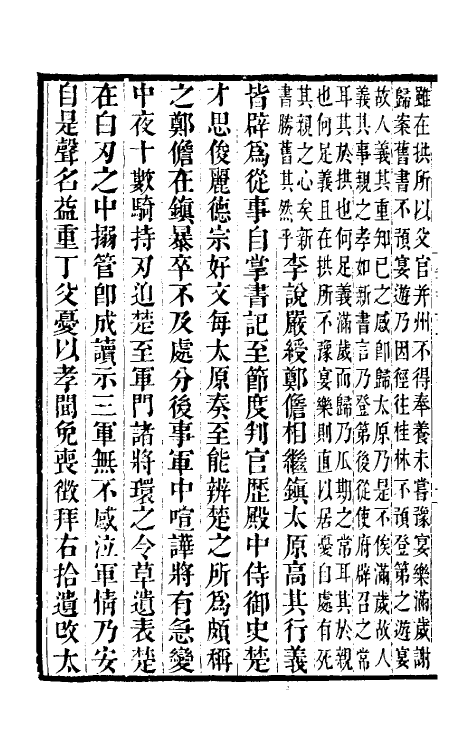 雖在拱所以父官并州不得奉養未嘗豫宴樂滿歲謝
歸案舊書不預宴遊乃因徑往桂林不預登第之遊宴
故人義其重知己之感卽歸太原乃是不俟滿歲故人
義其事親之孝如新書言乃登第後從使府辟召之常
耳其於拱也何足義滿歲而歸乃瓜期之常耳其於親
也何足義且在拱所不豫宴樂則直以居憂自處有死
其親之心矣新
書勝舊其然乎李說嚴綬鄭儋相繼鎮太原高其行義
皆辟爲從事自掌書記至節度判官歷殿中侍御史楚
才思俊麗德宗好文每太原奏至能辨楚之所爲頗稱
之鄭儋在鎮暴卒不及處分後事軍中喧譁將有急變
中夜十數騎持刃迫楚至軍門諸將環之令草遺表楚
在白刃之中搦管卽成讀示三軍無不感泣軍情乃安
自是聲名益重丁父憂以孝聞免喪徵拜右拾遺改太